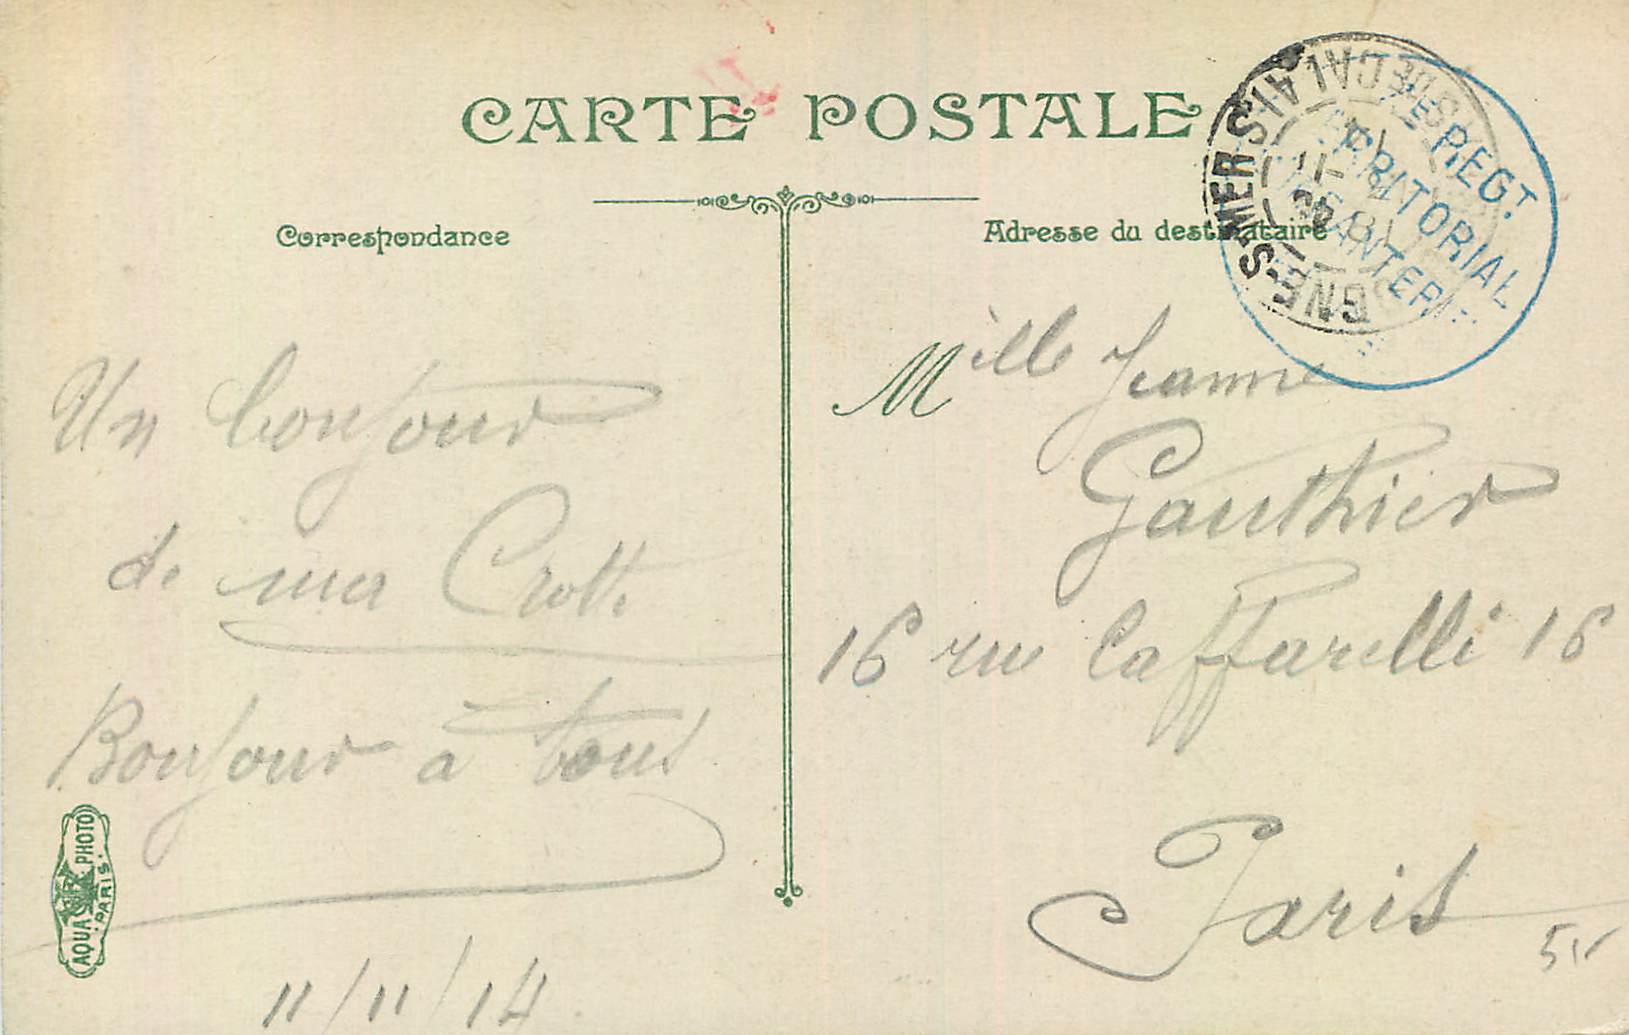 CARTE POSTALE
Correspondance
Adresse du destinataire
REGT
TERRITORIAL
INFANTERIE
S-MER
PAS DE CALAIS
Un bonjour
de ma Crotte
Bonjour à tous
11/11/14
Mlle Jeanne
Gauthier
16 rue Caffarelli 16
Paris
AQUA PHOTO
PARIS